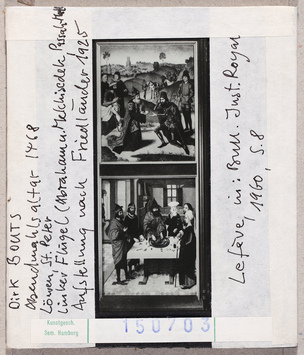 Dirk BOUTS
Abendmahlsaltar 1468
Löwen, St. Peter
linker Flügel (Abraham u. Melchisedek, Passah-Mahl)
Aufstellung nach Friedländer 1925
Lefève, in: Bull. Inst. Royal
1960, S. 8
Kunstgesch.
Sem. Hamburg
150703